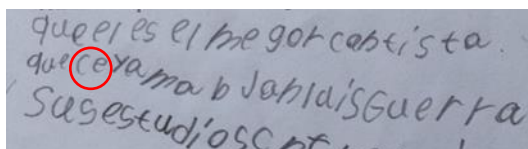 que el es el megor cantista.
que ce yama bJanlaisGuerra
Susestudios